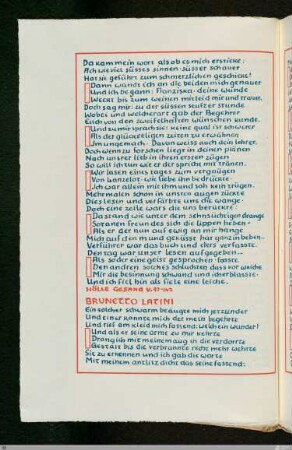 Da kam mein wort als ob es mich ersticke:
Ach wie viel süsses sinnen · süsser schauer
Hat sie geführt zum schmerzlichen geschicke!
Dann wandt ich an die beiden mich genauer
Und ich begann: Franziska · deine wunde
Weckt bis zum weinen mitleid mir und trauer.
Doch sag mir: zu der süssen seufzer stunde
Wobei und welcherart gab der Begehrer
Euch von den zweifelhaften wünschen kunde.
Und sie mir sprach sie: keine qual ist schwerer
Als der glückseligen zeiten zu erwähnen
Im ungemach. Davon weiss auch dein lehrer.
Doch wenn zu forschen liegt in deinen plänen
Nach unsrer lieb in ihren ersten zügen
So will ich tun wie er der spricht mit tränen.
Wir lasen eines tages zum vergnügen
Von Lanzelot · wie liebe ihn bedrückte ·
Ich war allein mit ihm und sah kein trügen.
Mehrmalen schon in unsren augen zückte
Dies lesen und verfärbte uns die wange ·
Doch eine zeile war's die uns berückte.
Da stand wie unter dem sehnsüchtigen drange
So ranen freundes sich die lippen heben ·
Als er der nun auf ewig an mir hange
Mich auf den mund geküsst hat ganz in beben.
Verführer war das buch und der's verfasste.
Den tag war unser lesen aufgegeben..
Als so der eine geist gesprochen · fasste
Den andren solches schluchzen dass vor weiche
Mir die besinnung schwand und ich erblasste:
Und ich fiel hin als fiele eine leiche.
HÖLLE GESANG
BRUNETTO LATINI
Ein solcher schwarm beäugte mich jetzunder
Und einer kannte mich der mein begehrte
Und rief am kleid mich fassend: welch ein wunder!
Und als er seine arme zu mir kehrte
Drang ich mit meinem aug in die verdorrte
Gestalt bis die verbrannte nicht mehr wehrte
Sie zu erkennen und ich gab die worte
Mit meinem antlitz dicht das seine fassend: